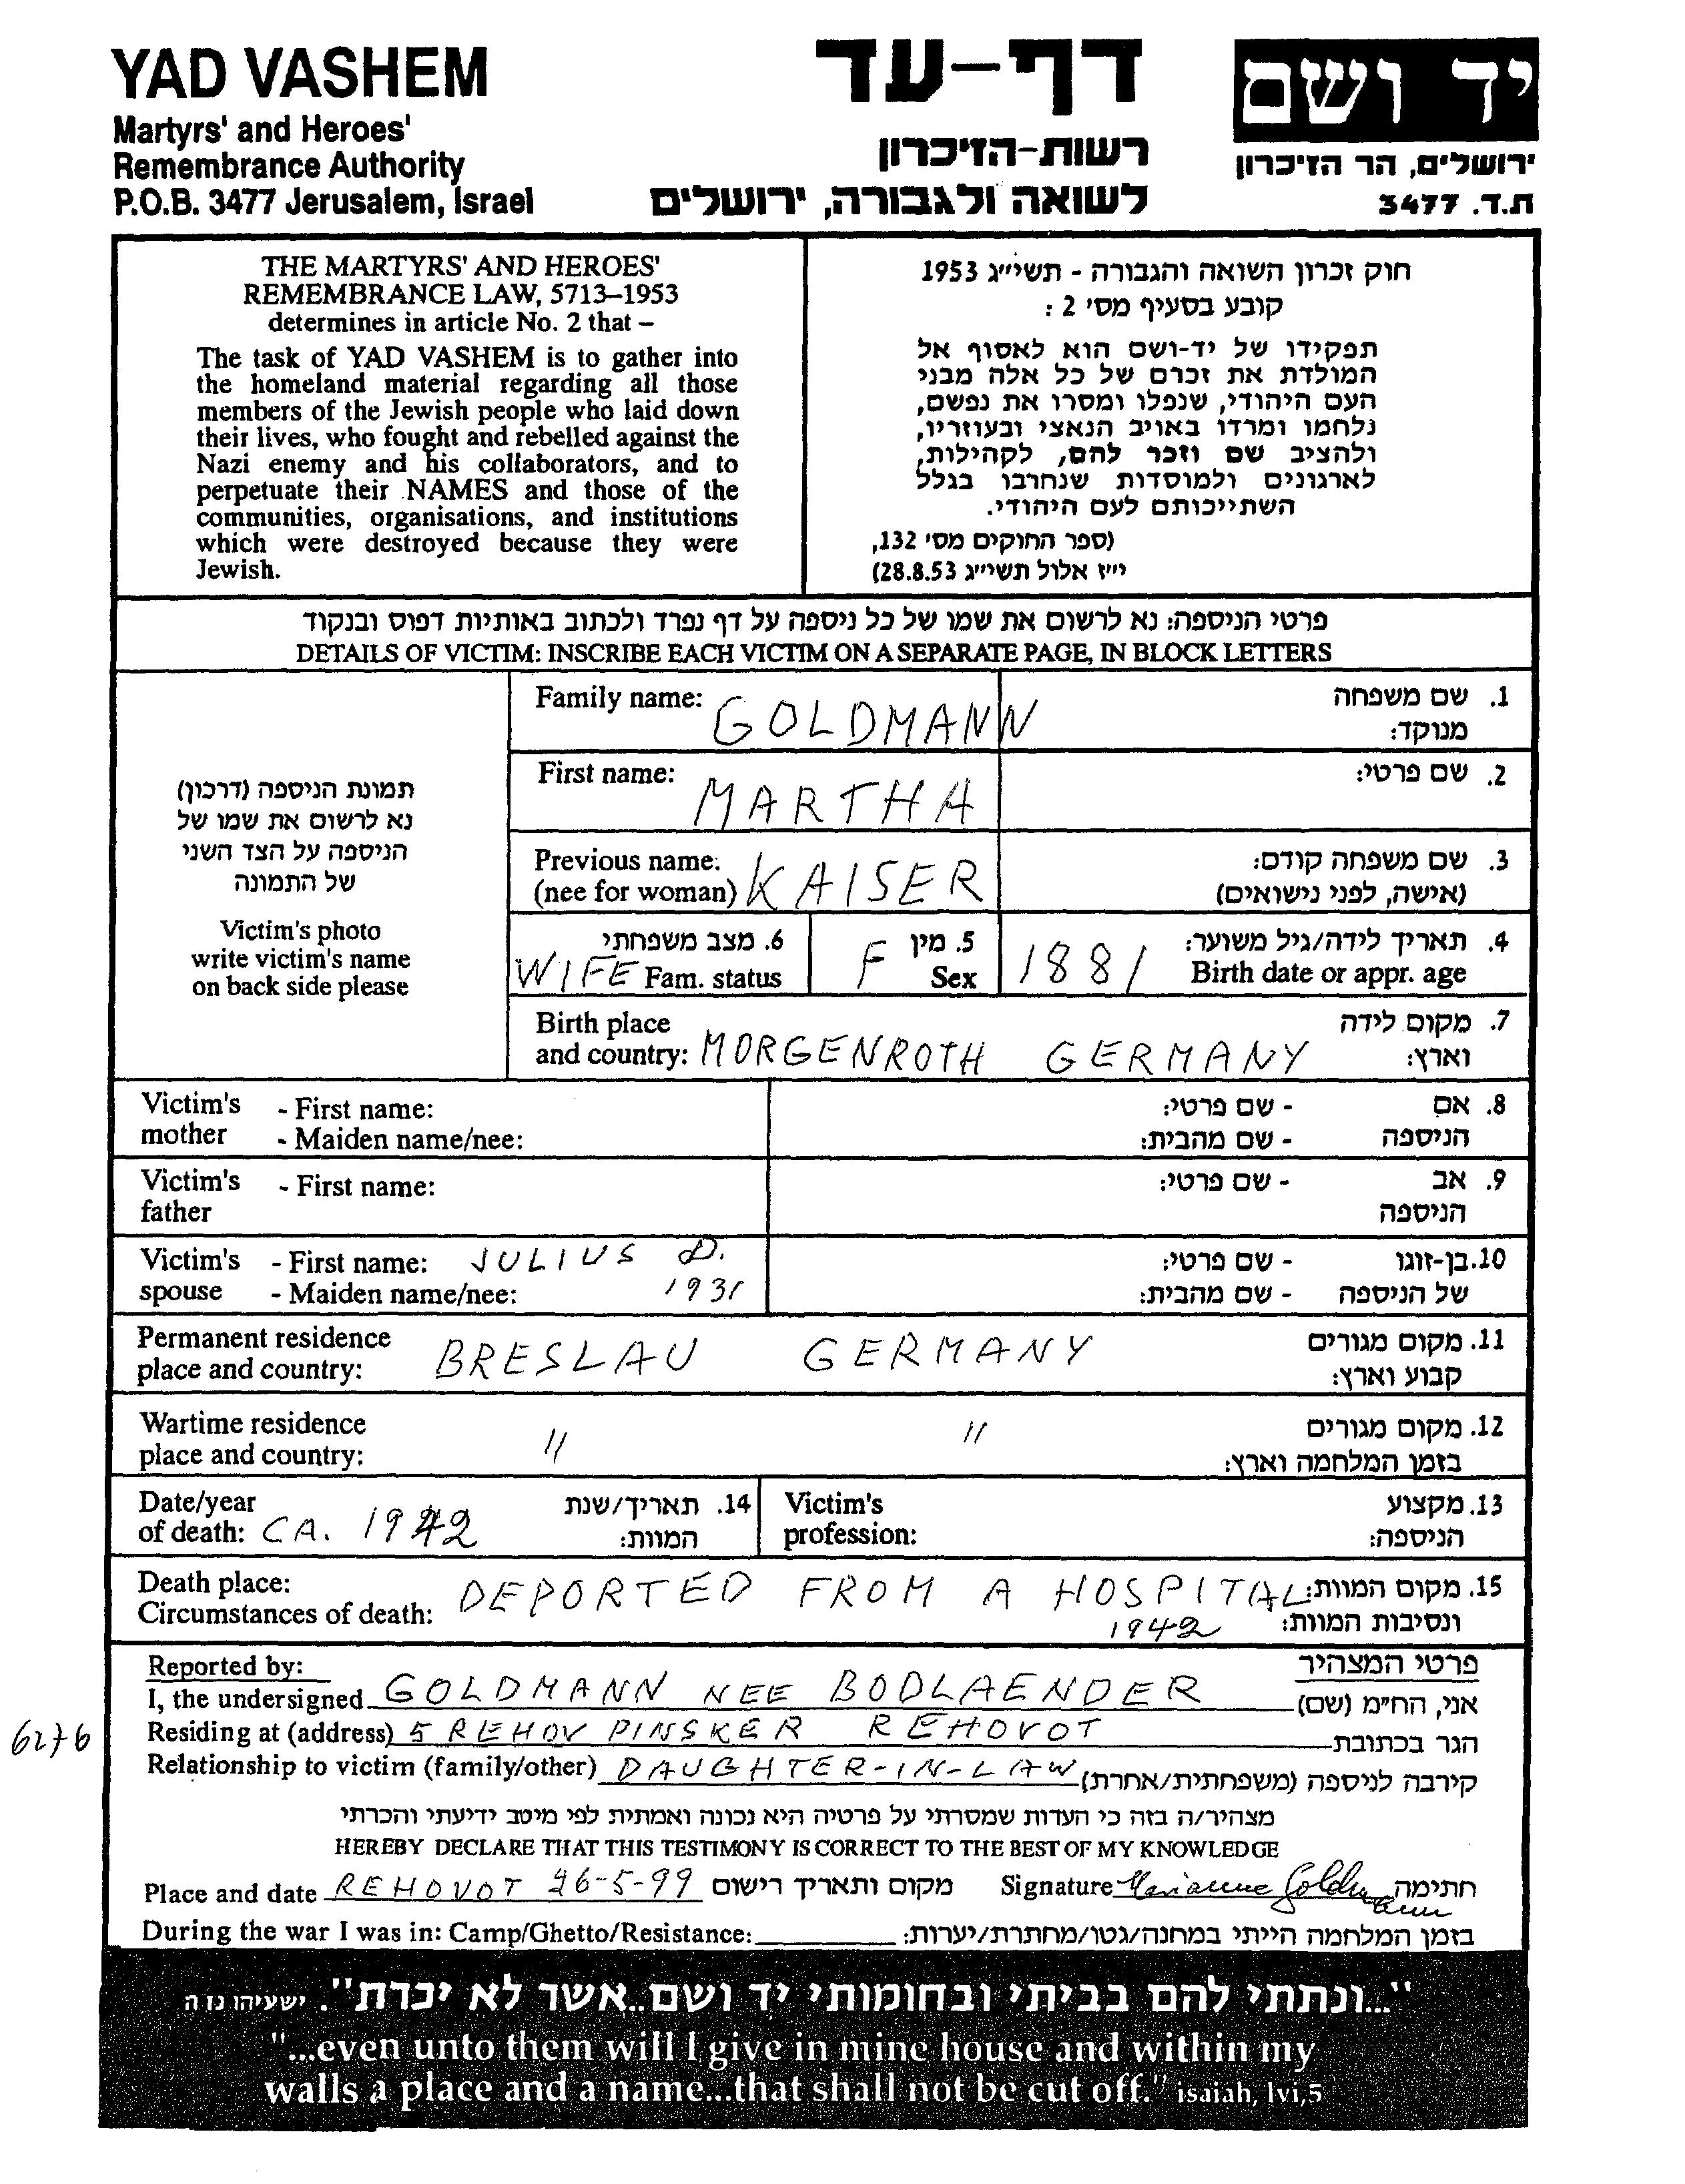 YAD VASHEM
Martyrs' and Heroes'
Remembrance Authority
P.O.B. 3477 Jerusalem, Israel
דף-עד
רשות-הזיכרון
לשואה ולגבורה, ירושלים
יד ושם
ירושלים, הר הזיכרון
ת.ד. 3477
THE MARTYRS' AND HEROES'
REMEMBRANCE LAW, 5713–1953
determines in article No. 2 that –
The task of YAD VASHEM is to gather into
the homeland material regarding all those
members of the Jewish people who laid down
their lives, who fought and rebelled against the
Nazi enemy and his collaborators, and to
perpetuate their NAMES and those of the
communities, organisations, and institutions
which were destroyed because they were
Jewish.
חוק זכרון השואה והגבורה - תשי״ג 1953
קובע בסעיף מס׳ 2 :
תפקידו של יד-ושם הוא לאסוף אל
המולדת את זכרם של כל אלה מבני
העם היהודי, שנפלו ומסרו את נפשם,
נלחמו ומרדו באויב הנאצי ובעוזריו,
ולהציב שם וזכר להם, לקהילות,
לארגונים ולמוסדות שנחרבו בגלל
השתייכותם לעם היהודי.
(ספר החוקים מס׳ 132,
י״ז אלול תשי״ג 28.8.53)
פרטי הניספה: נא לרשום את שמו של כל ניספה על דף נפרד ולכתוב באותיות דפוס ובנקוד
DETAILS OF VICTIM: INSCRIBE EACH VICTIM ON A SEPARATE PAGE, IN BLOCK LETTERS
תמונת הניספה (דרכון)
נא לרשום את שמו של
הניספה על הצד השני
של התמונה
Victim's photo
write victim's name
on back side please
Family name: GOLDMANN 1. שם משפחה
מנוקד:
First name: MARTHA 2. שם פרטי:
Previous name: KAISER 3. שם משפחה קודם:
(nee for woman) (אישה, לפני נישואים)
6. מצב משפחתי 5. מין 4. תאריך לידה/גיל משוער:
WIFE Fam. status F Sex 1881 Birth date or appr. age
Birth place 7. מקום לידה
and country: MORGENROTH GERMANY וארץ:
Victim's - First name: - שם פרטי: 8. אם
mother - Maiden name/nee: - שם מהבית: הניספה
Victim's - First name: - שם פרטי: 9. אב
father הניספה
Victim's - First name: JULIUS D. - שם פרטי: 10. בן-זוגו
spouse - Maiden name/nee: 1931 - שם מהבית: של הניספה
Permanent residence 11. מקום מגורים
place and country: BRESLAU GERMANY קבוע וארץ:
Wartime residence 12. מקום מגורים
place and country: " " בזמן המלחמה וארץ:
Date/year 14. תאריך/שנת Victim's 13. מקצוע
of death: CA. 1942 המוות: profession: הניספה:
Death place: DEPORTED FROM A HOSPITAL 15. מקום המוות:
Circumstances of death: 1942 ונסיבות המוות:
Reported by: פרטי המצהיר
I, the undersigned GOLDMANN NEE BODLAENDER אני, הח״מ (שם)
6276
Residing at (address) 5 REHOV PINSKER REHOVOT הגר בכתובת
Relationship to victim (family/other) DAUGHTER-IN-LAW קירבה לניספה (משפחתית/אחרת)
מצהיר/ה בזה כי העדות שמסרתי על פרטיה היא נכונה ואמתית לפי מיטב ידיעתי והכרתי
HEREBY DECLARE THAT THIS TESTIMONY IS CORRECT TO THE BEST OF MY KNOWLEDGE
Place and date REHOVOT 26-5-99 מקום ותאריך רישום Signature Marianne Goldmann חתימה
During the war I was in: Camp/Ghetto/Resistance: בזמן המלחמה הייתי במחנה/גטו/מחתרת/יערות:
"...ונתתי להם בביתי ובחומותי יד ושם..אשר לא יכרת". ישעיהו נו ה
"...even unto them will I give in mine house and within my
walls a place and a name...that shall not be cut off." isaiah, lvi,5